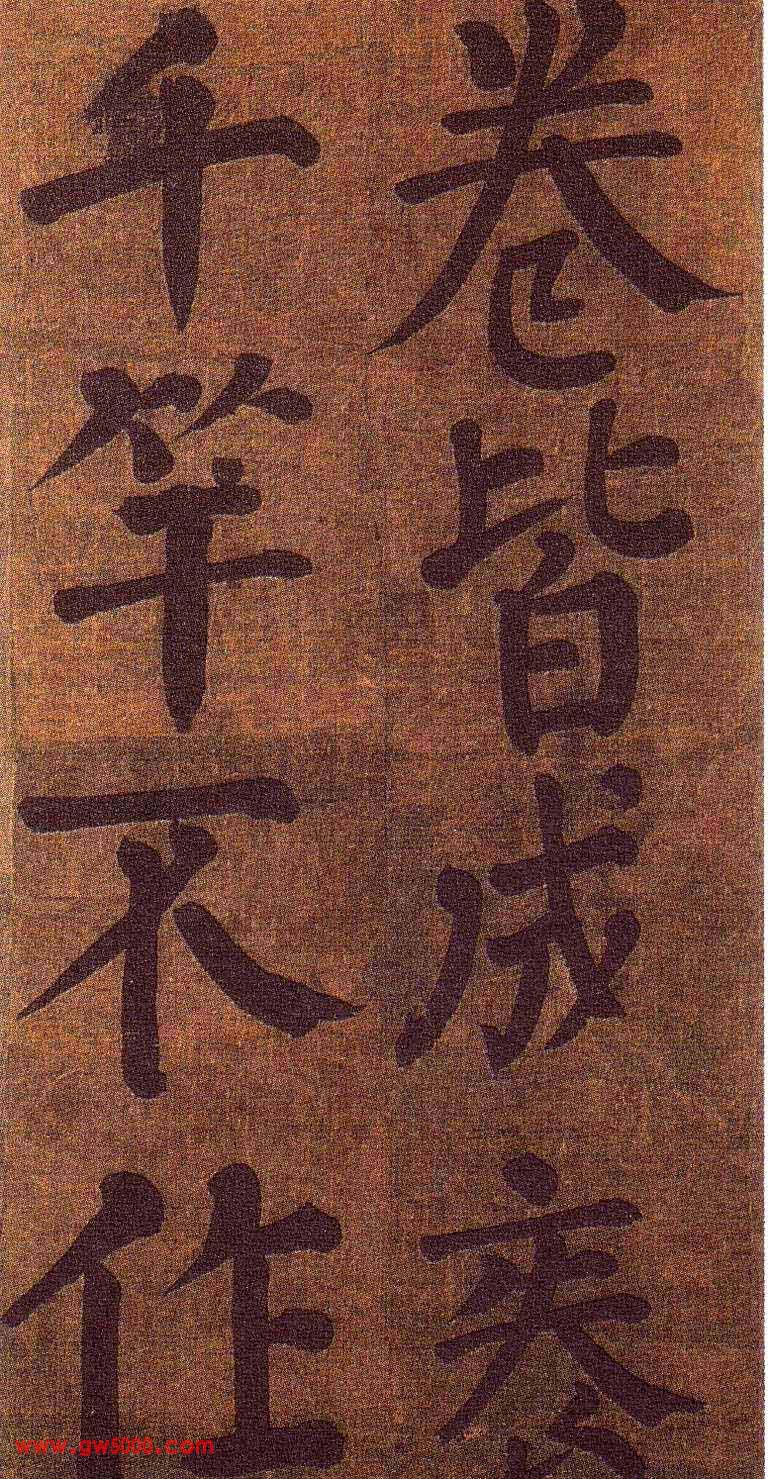 卷皆成
千竿不作
www.gw5000.com